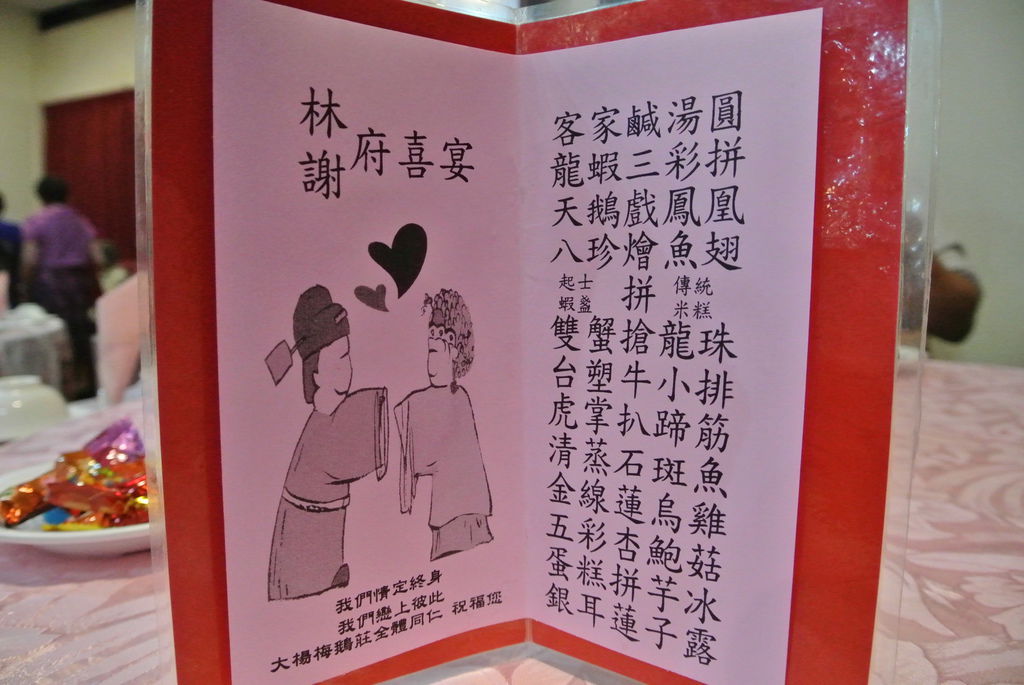 林謝府喜宴
我們情定終身
我們戀上彼此
大楊梅鵝莊全體同仁 祝福您
客家鹹湯圓
龍蝦三彩拼
天鵝戲鳳凰
八珍燴魚翅
起士蝦盞拼傳統米糕
雙蟹搶龍珠
台塑牛小排
虎掌扒蹄筋
清蒸石斑魚
金線蓮烏雞
五彩杏鮑菇
蛋糕拼芋冰
銀耳蓮子露